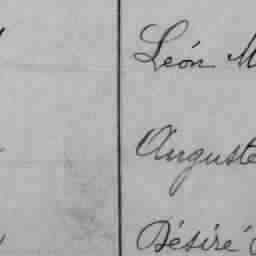 León M
Auguste
Désiré